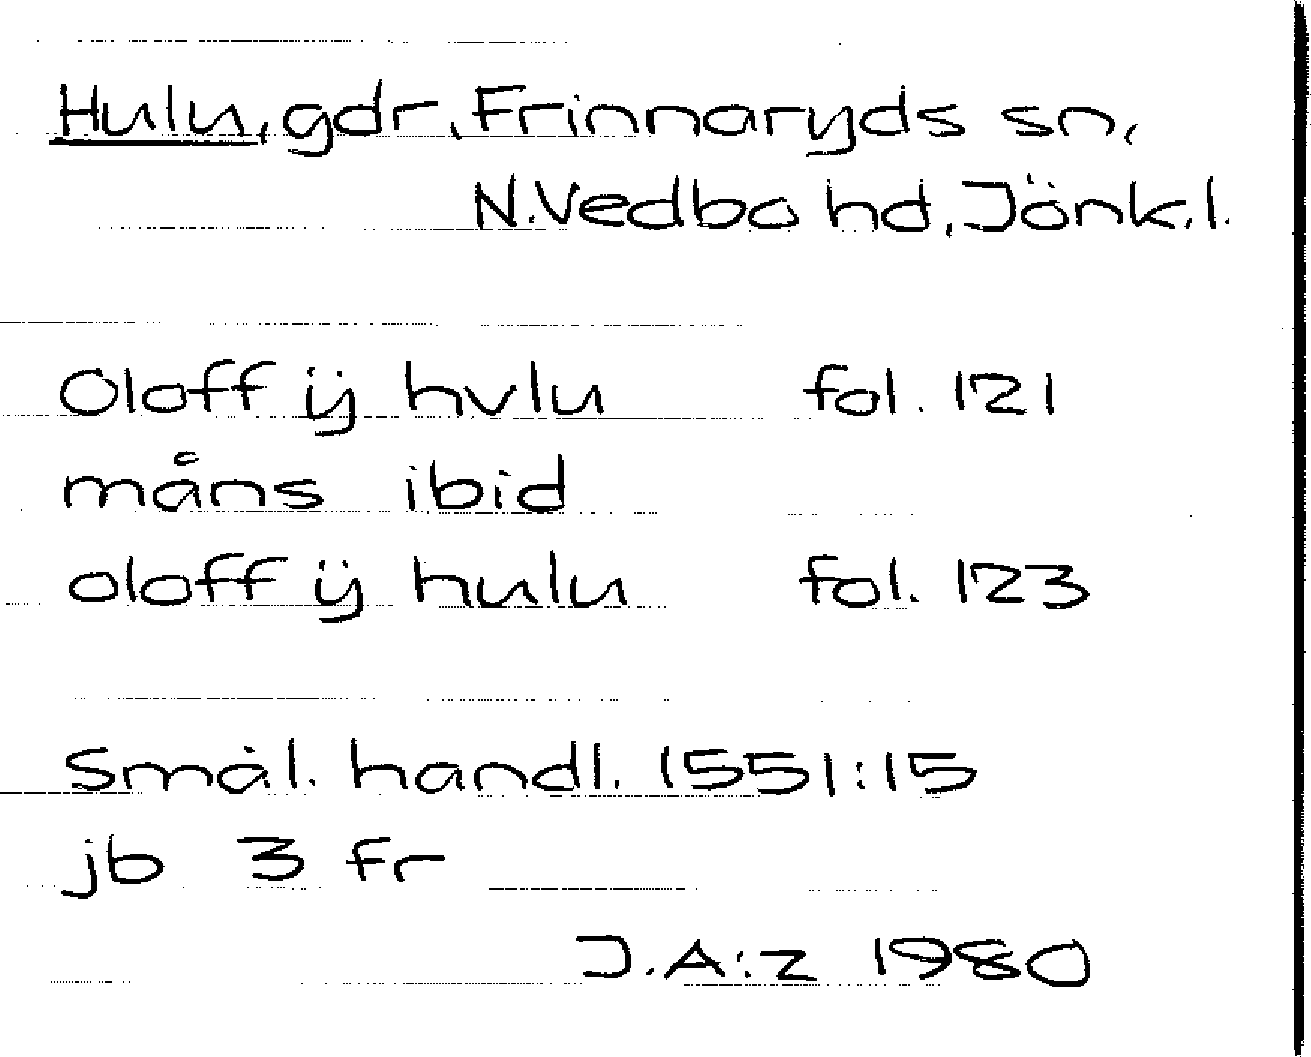 Hulu, gdr, Frinnaryds sn,
N.Vedbo hd, Jönk.l.
Oloff ij hvlu fol. 121
måns ibid
oloff ij hulu fol. 123
Smål. handl. 1551:15
jb 3 fr
J.A:z 1980